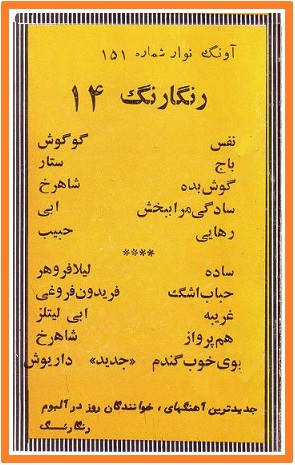 آونگ نوار شماره ۱۵۱
رنگارنگ ۱۴
نفس گوگوش
باج ستار
گوش‌بده شاهرخ
سادگی‌مراببخش ابی
رهایی حبیب
****
ساده لیلافروهر
حباب‌اشگ فریدون‌فروغی
غریبه ابی لیتلز
هم‌پرواز شاهرخ
بوی‌خوب‌گندم «جدید» داریوش
جدیدترین آهنگهای، خوانندگان روز در آلبوم
رنگارنگ